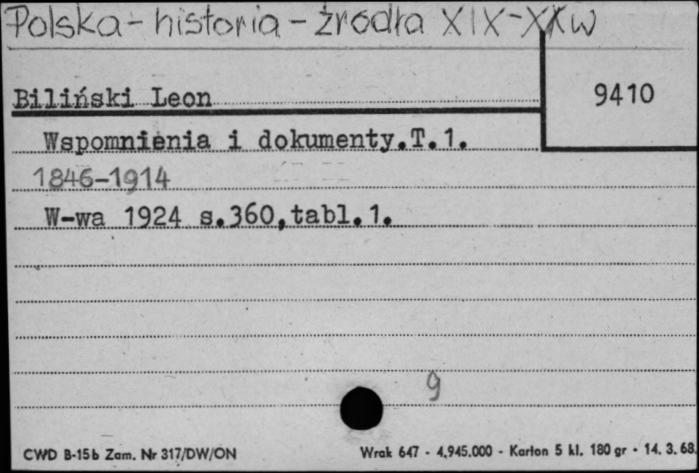 Polska - historia - źródła XIX-XX w
Biliński Leon
9410
Wspomnienia i dokumenty.T.1.
1846-1914
W-wa 1924 s.360,tabl.1.
9
CWD B-15b Zam. Nr 317/DW/ON
Wrak 647 - 4.945.000 - Karton 5 kl. 180 gr - 14. 3. 68